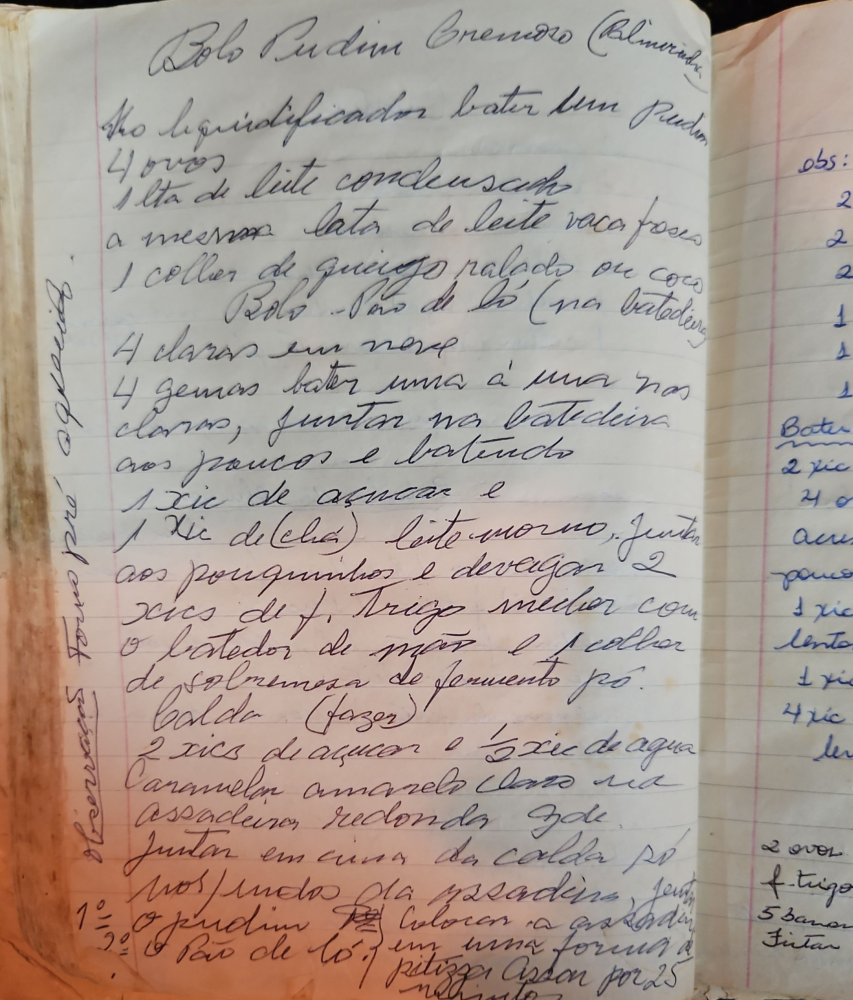 Bolo Pudim Cremoso (Palmerinda
No liquidificador bater bem Pudim
4 ovos
1 lta de leite condensado
a mesma lata de leite vaca
1 colher de queijo ralado ou coco
Bolo - Pão de ló (na batedeira)
4 claras em neve
4 gemas bater uma à uma nas
claras, juntar na batedeira
aos poucos e batendo
1 xic de açucar e
1 xic de (chá) leite morno, juntar
aos pouquinhos e devagar 2
xics de f. trigo mecher com
o batedor de mão e 1 colher
de sobremesa de fermento pó.
Calda (fazer)
2 xics de açucar e 1/2 xic de agua
Caramelar amarelo claro na
assadeira redonda gde.
Juntar em cima da calda só
nos fundos da assadeira, juntar
1º o pudim
2º o Pão de ló.
Colocar a assadeira
em uma forma de
pitizza Assar por 25
minutos
Observação Forno pré aquecido.
obs:
2
2
2
1
1
1
Bater
2 xic
4 o
açuc
pouco
1 xic
lenta
1 xic
4 xic
2 ovos
f. trigo
5 banan
Juntar